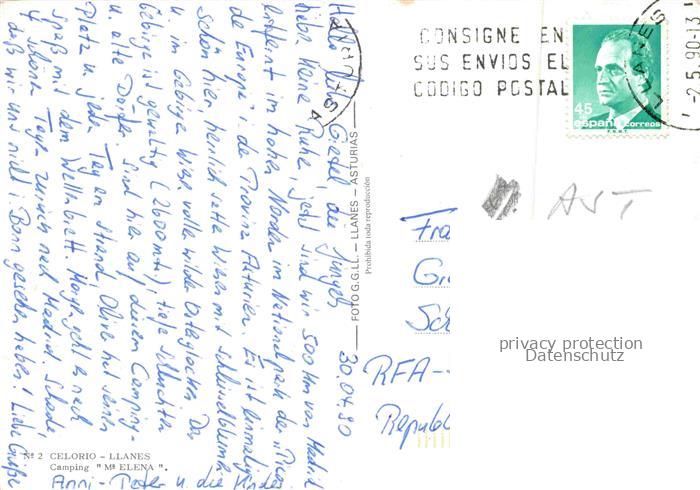 30.04.90
Hallo
haben keine Ruhe, jetzt sind wir 500 km von Madrid
entfernt im hohen Norden im Nationalpark de "Picos
de Europa" i. de Provinz Asturien. Es ist einmalig
schön hier, herrlich satte Wiesen mit
u. im Gebirge Wiesen voller wilder Das
Gebirge ist gewaltig (2600 mt.), tiefe Schluchten
u. alte Dörfer. Sind hier auf diesem Camping-
Platz u. jeden Tag am Strand, hat seinen
Spaß mit dem Wellenbrett. Morgen geht es nach
4 schönen Tagen zurück nach Madrid. Schade,
daß wir uns nicht i. Bonn gesehen haben! Liebe Grüße
Anni-Peter u. die Kinder
Nº 2 CELORIO - LLANES
Camping "Mª ELENA".
FOTO G.G.LL. — LLANES — ASTURIAS
Prohibida toda reproducción
CONSIGNE EN
SUS ENVIOS EL
CODIGO POSTAL
LLANES
-2.5.90-13
45
españa correos
F.N.M.T.
AST
Fra
G
Sc
RFA-
Republ
privacy protection
Datenschutz